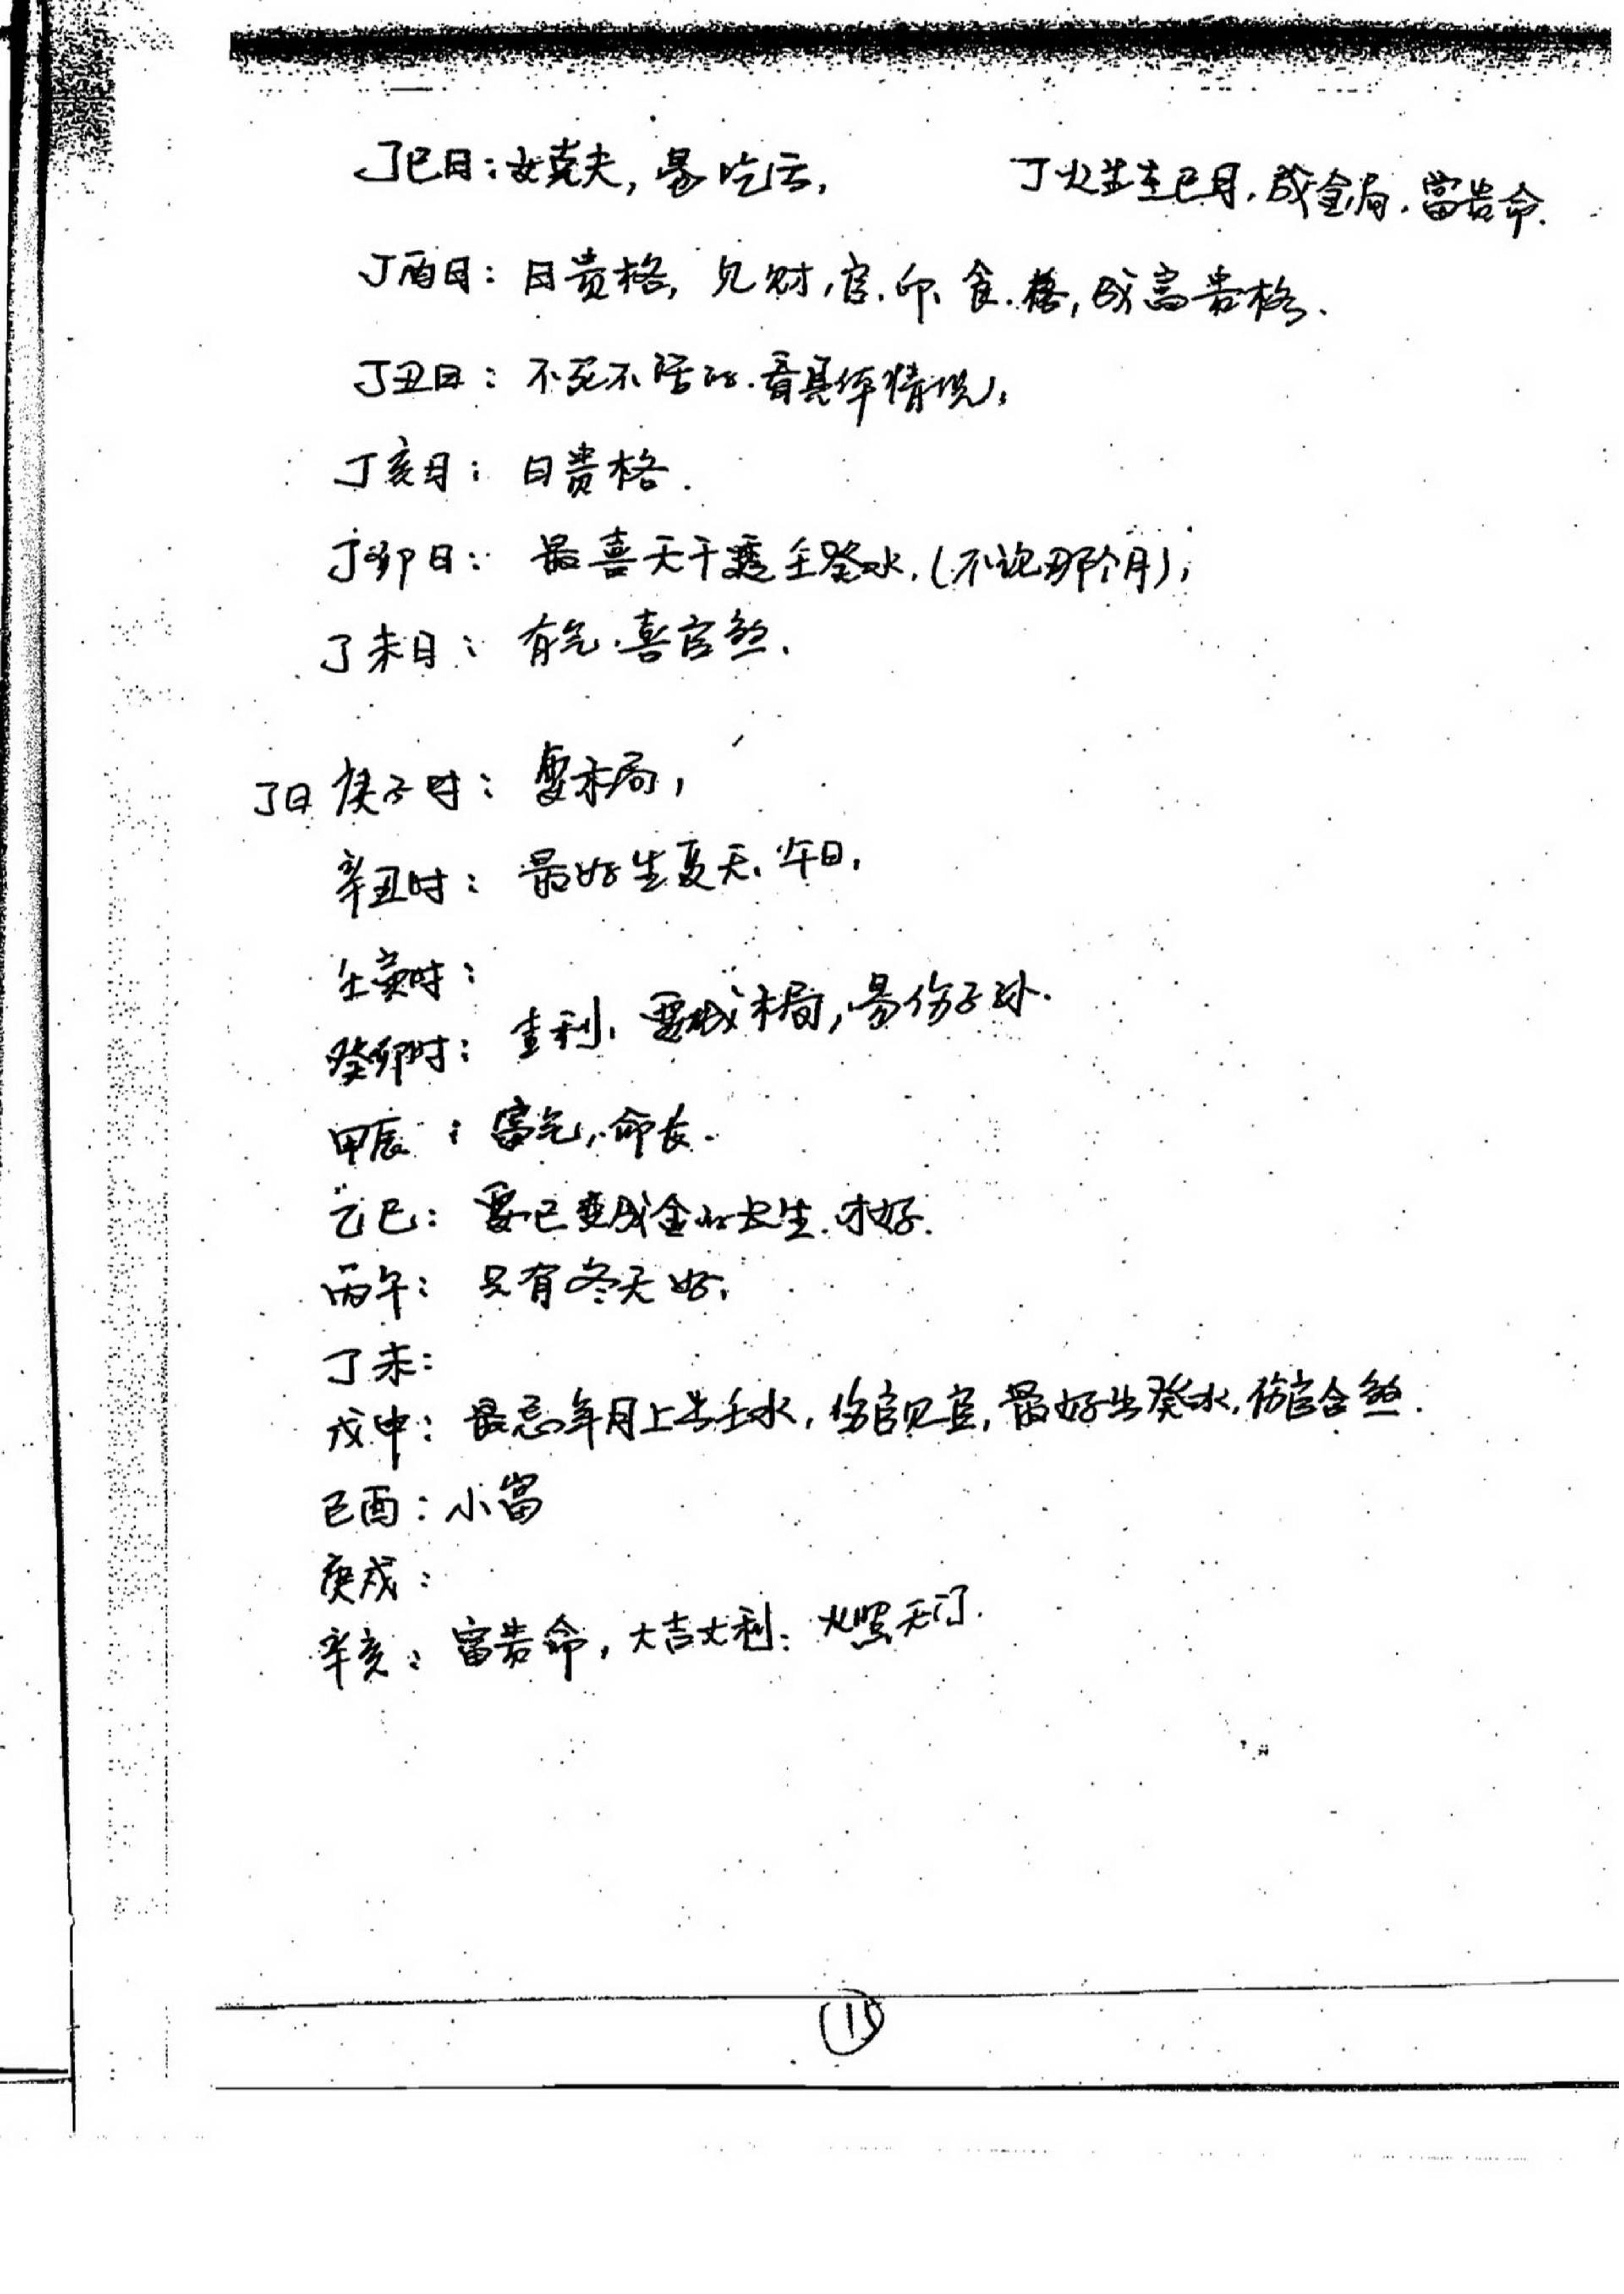 丁巳日：女克夫，易吃亏，　丁火生在巳月，成金局，富贵命．
丁酉日：日贵格，见财，官、印、食、格，成富贵格．
丁丑日：不死不活的．看具体情况，
丁亥日：日贵格．
丁卯日：最喜天干透壬癸水，(不论那个月)，
丁未日：有气，喜官煞．
丁日 庚子时：要木局，
辛丑时：最好生夏天、午日，
壬寅时：
癸卯时：吉利，要成木局，易伤子孙．
甲辰：富气，命长．
乙巳：要巳变成金的长生．才好．
丙午：只有冬天好，
丁未：
戊申：最忌年月上出壬水，伤官见官，最好出癸水，伤官合煞．
己酉：小富
庚戌：
辛亥：富贵命，大吉大利：火照天门．